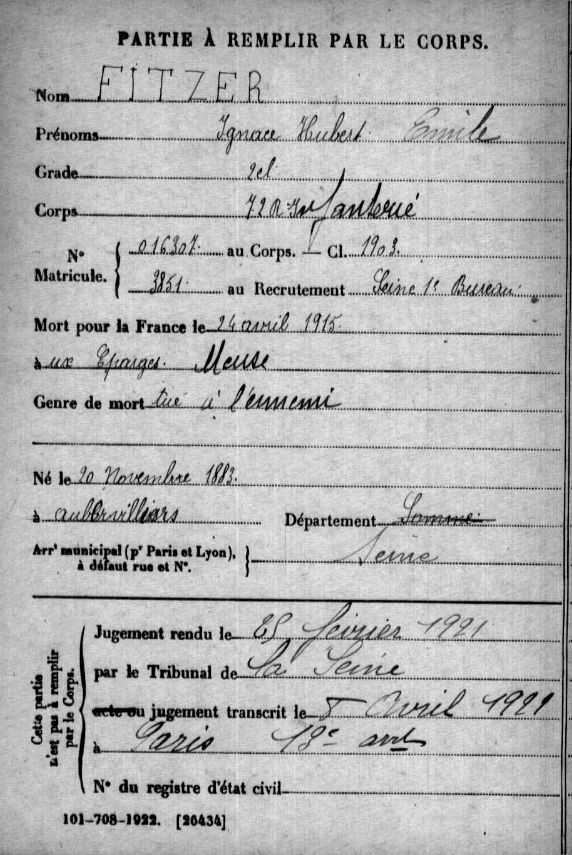 PARTIE À REMPLIR PAR LE CORPS.
Nom FITZER
Prénoms Ignace Hubert Emile
Grade 2cl
Corps 72 R Infanterie
N° Matricule. 016307. au Corps. — Cl. 1903.
3851. au Recrutement Seine 1r Bureau.
Mort pour la France le 24 avril 1915.
à ux Eparges. Meuse
Genre de mort tué à l'ennemi
Né le 20 Novembre 1883.
à aubervilliers Département Somme
Arrt municipal (pr Paris et Lyon), à défaut rue et N°. Seine
Cette partie n'est pas à remplir par le Corps.
Jugement rendu le 25 février 1921
par le Tribunal de la Seine
acte ou jugement transcrit le 8 Avril 1921
à Paris 18e arrt
N° du registre d'état civil
101-708-1922. [26434]